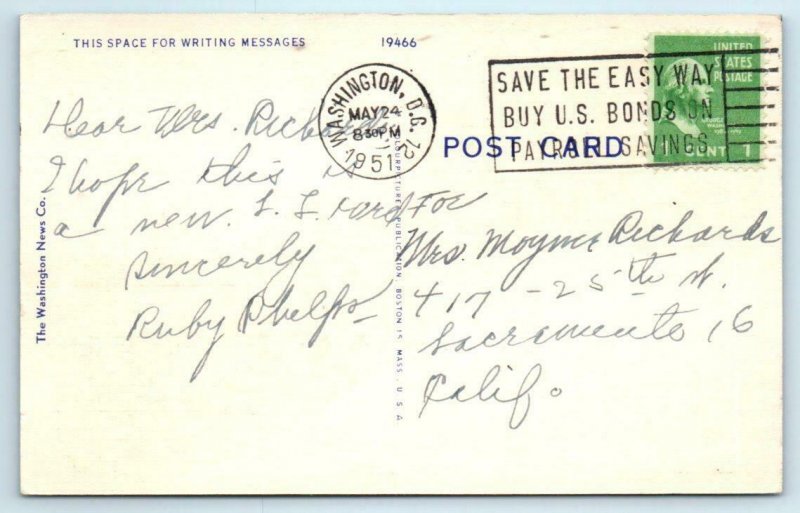 THIS SPACE FOR WRITING MESSAGES
19466
WASHINGTON, D.C. 12
MAY 24
8 30 PM
1951
SAVE THE EASY WAY
BUY U.S. BONDS ON
PAYROLL SAVINGS
UNITED
STATES
POSTAGE
1 CENT 1
POST CARD
Dear Mrs. Richards
I hope this is
a new L. L. card for
sincerely
Ruby Phelps
Mrs. Moyne Richards
417 - 25th St.
Sacramento 16
Calif.
The Washington News Co.
"COLOURPICTURE" PUBLICATION, BOSTON 15, MASS., U.S.A.